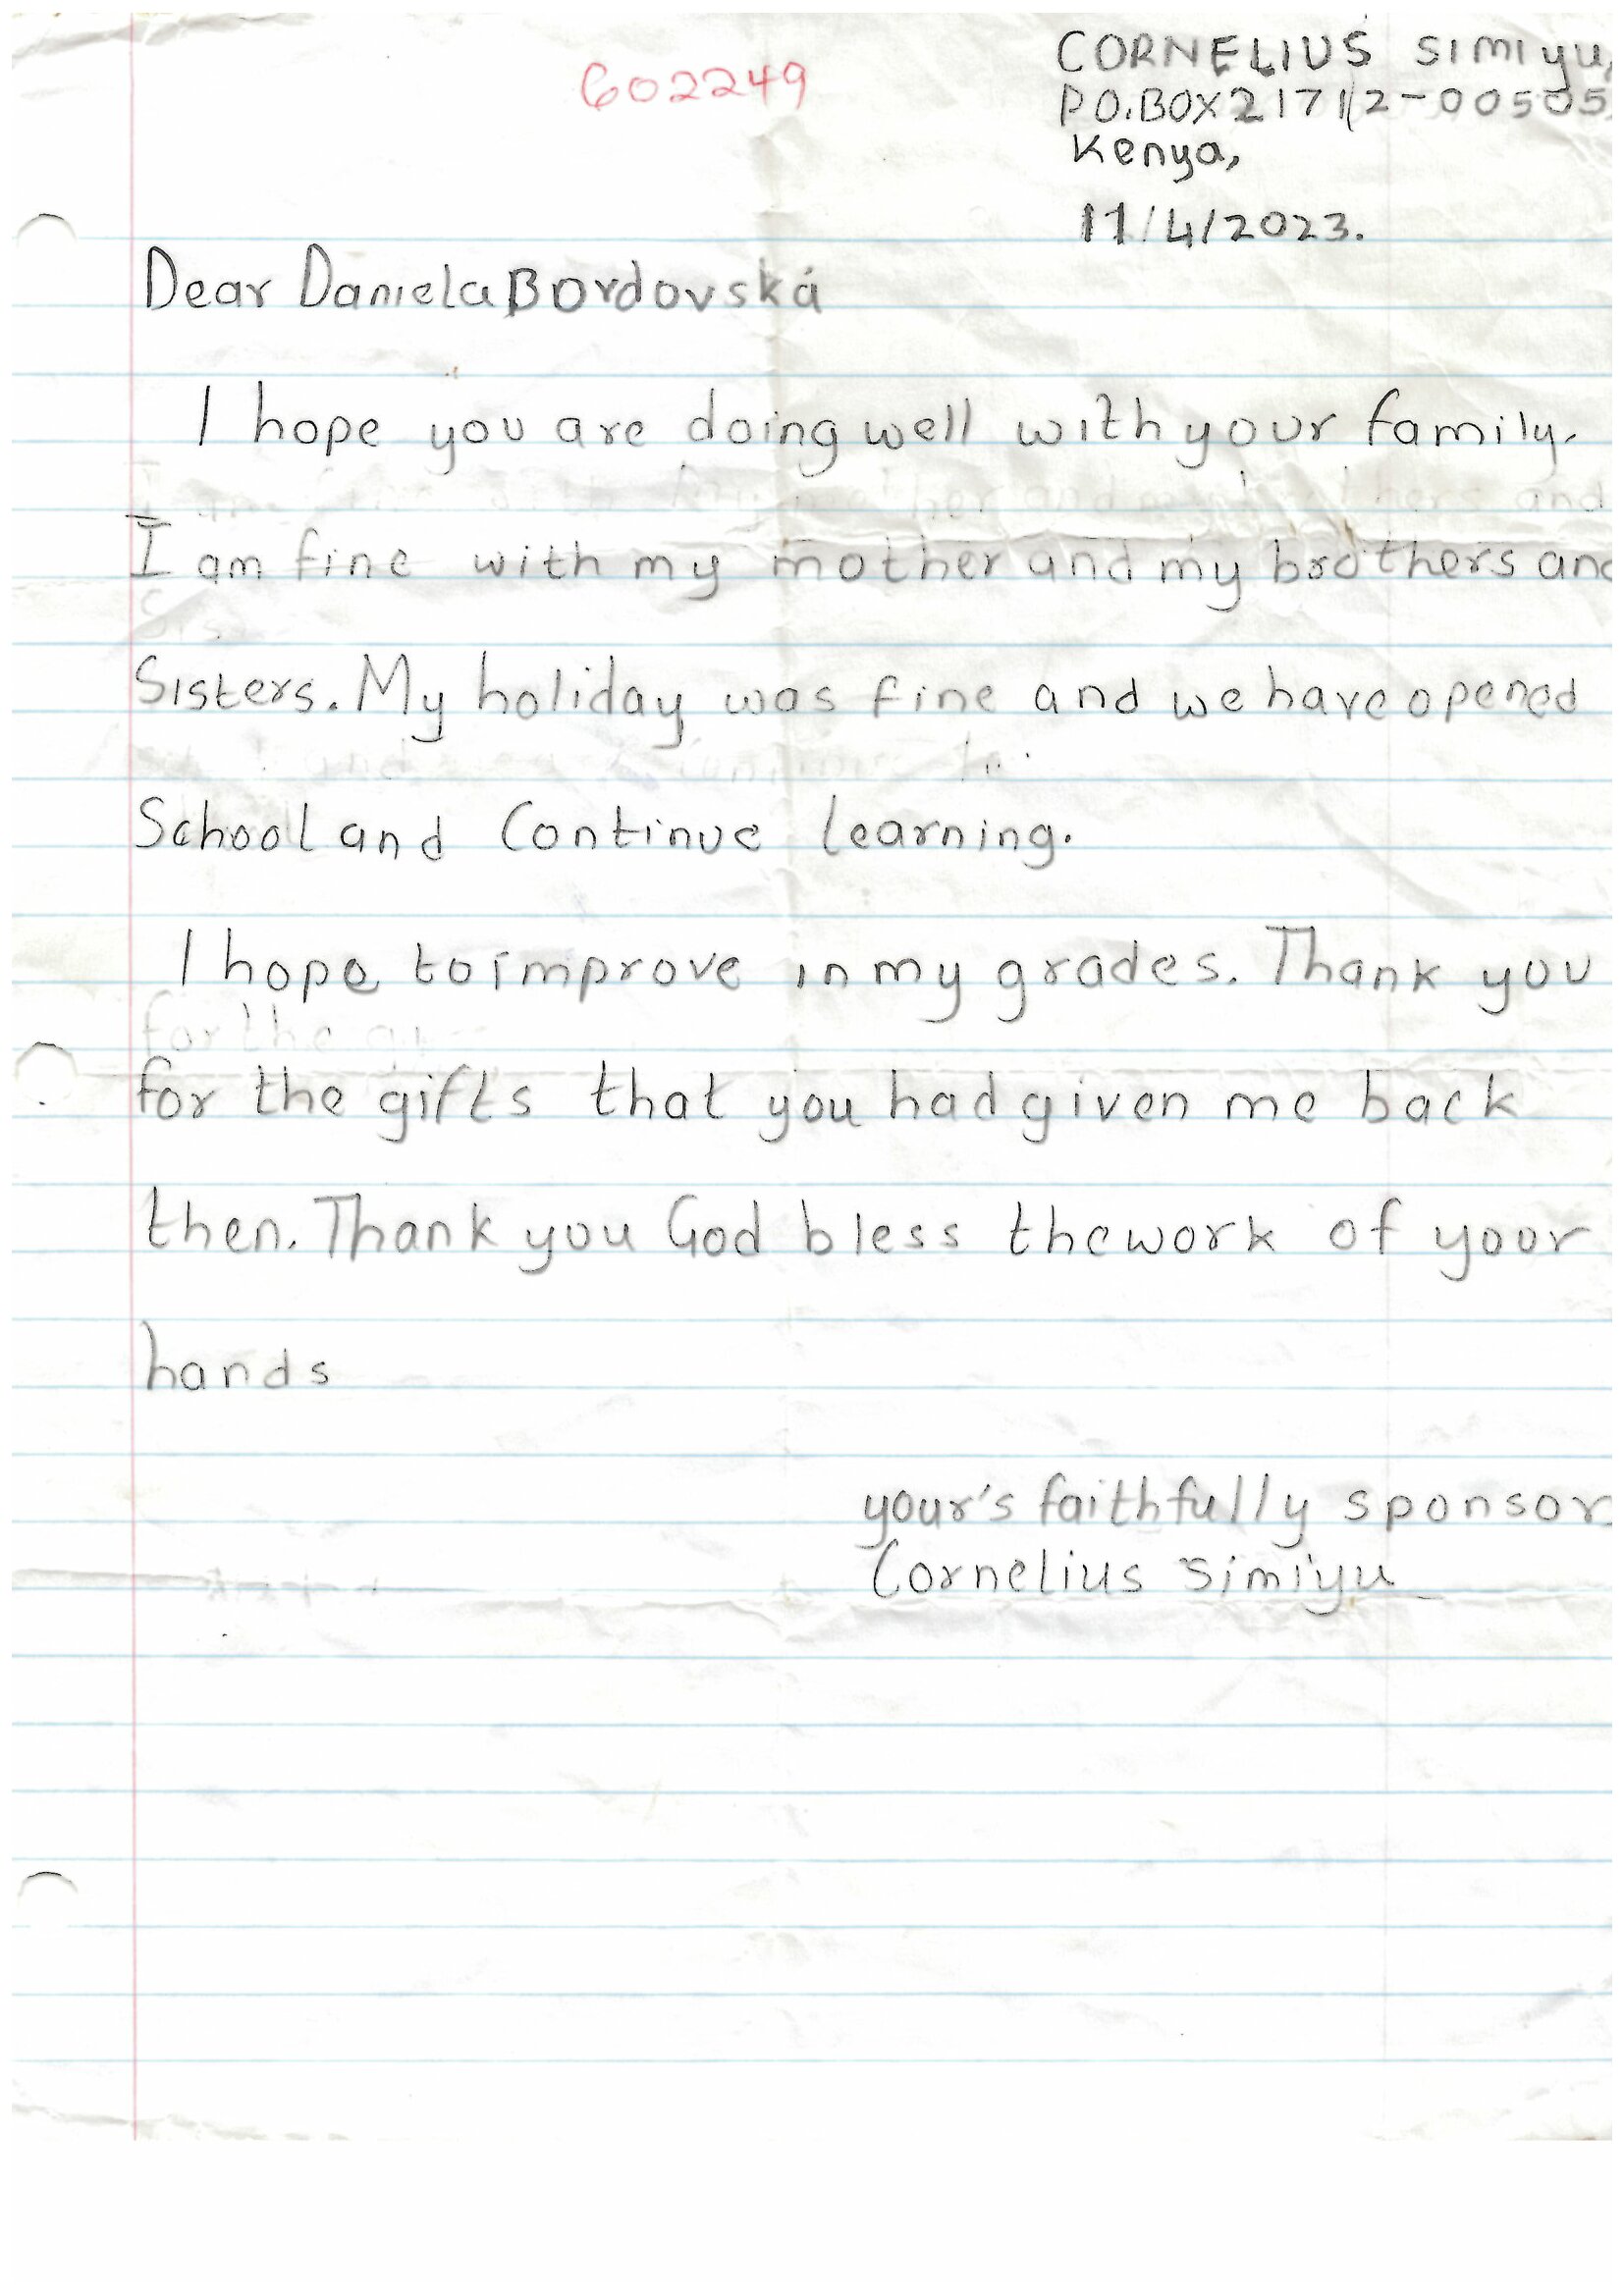 602249
CORNELIUS SIMIYU,
P.O.BOX 21712-00505,
Kenya,
11/4/2023.
Dear Daniela Bordovská
I hope you are doing well with your family.
I am fine with my mother and my brothers and
Sisters. My holiday was fine and we have opened
School and Continue learning.
I hope to improve in my grades. Thank you
for the gifts that you had given me back
then. Thank you God bless the work of your
hands
your's faithfully sponsor
Cornelius Simiyu